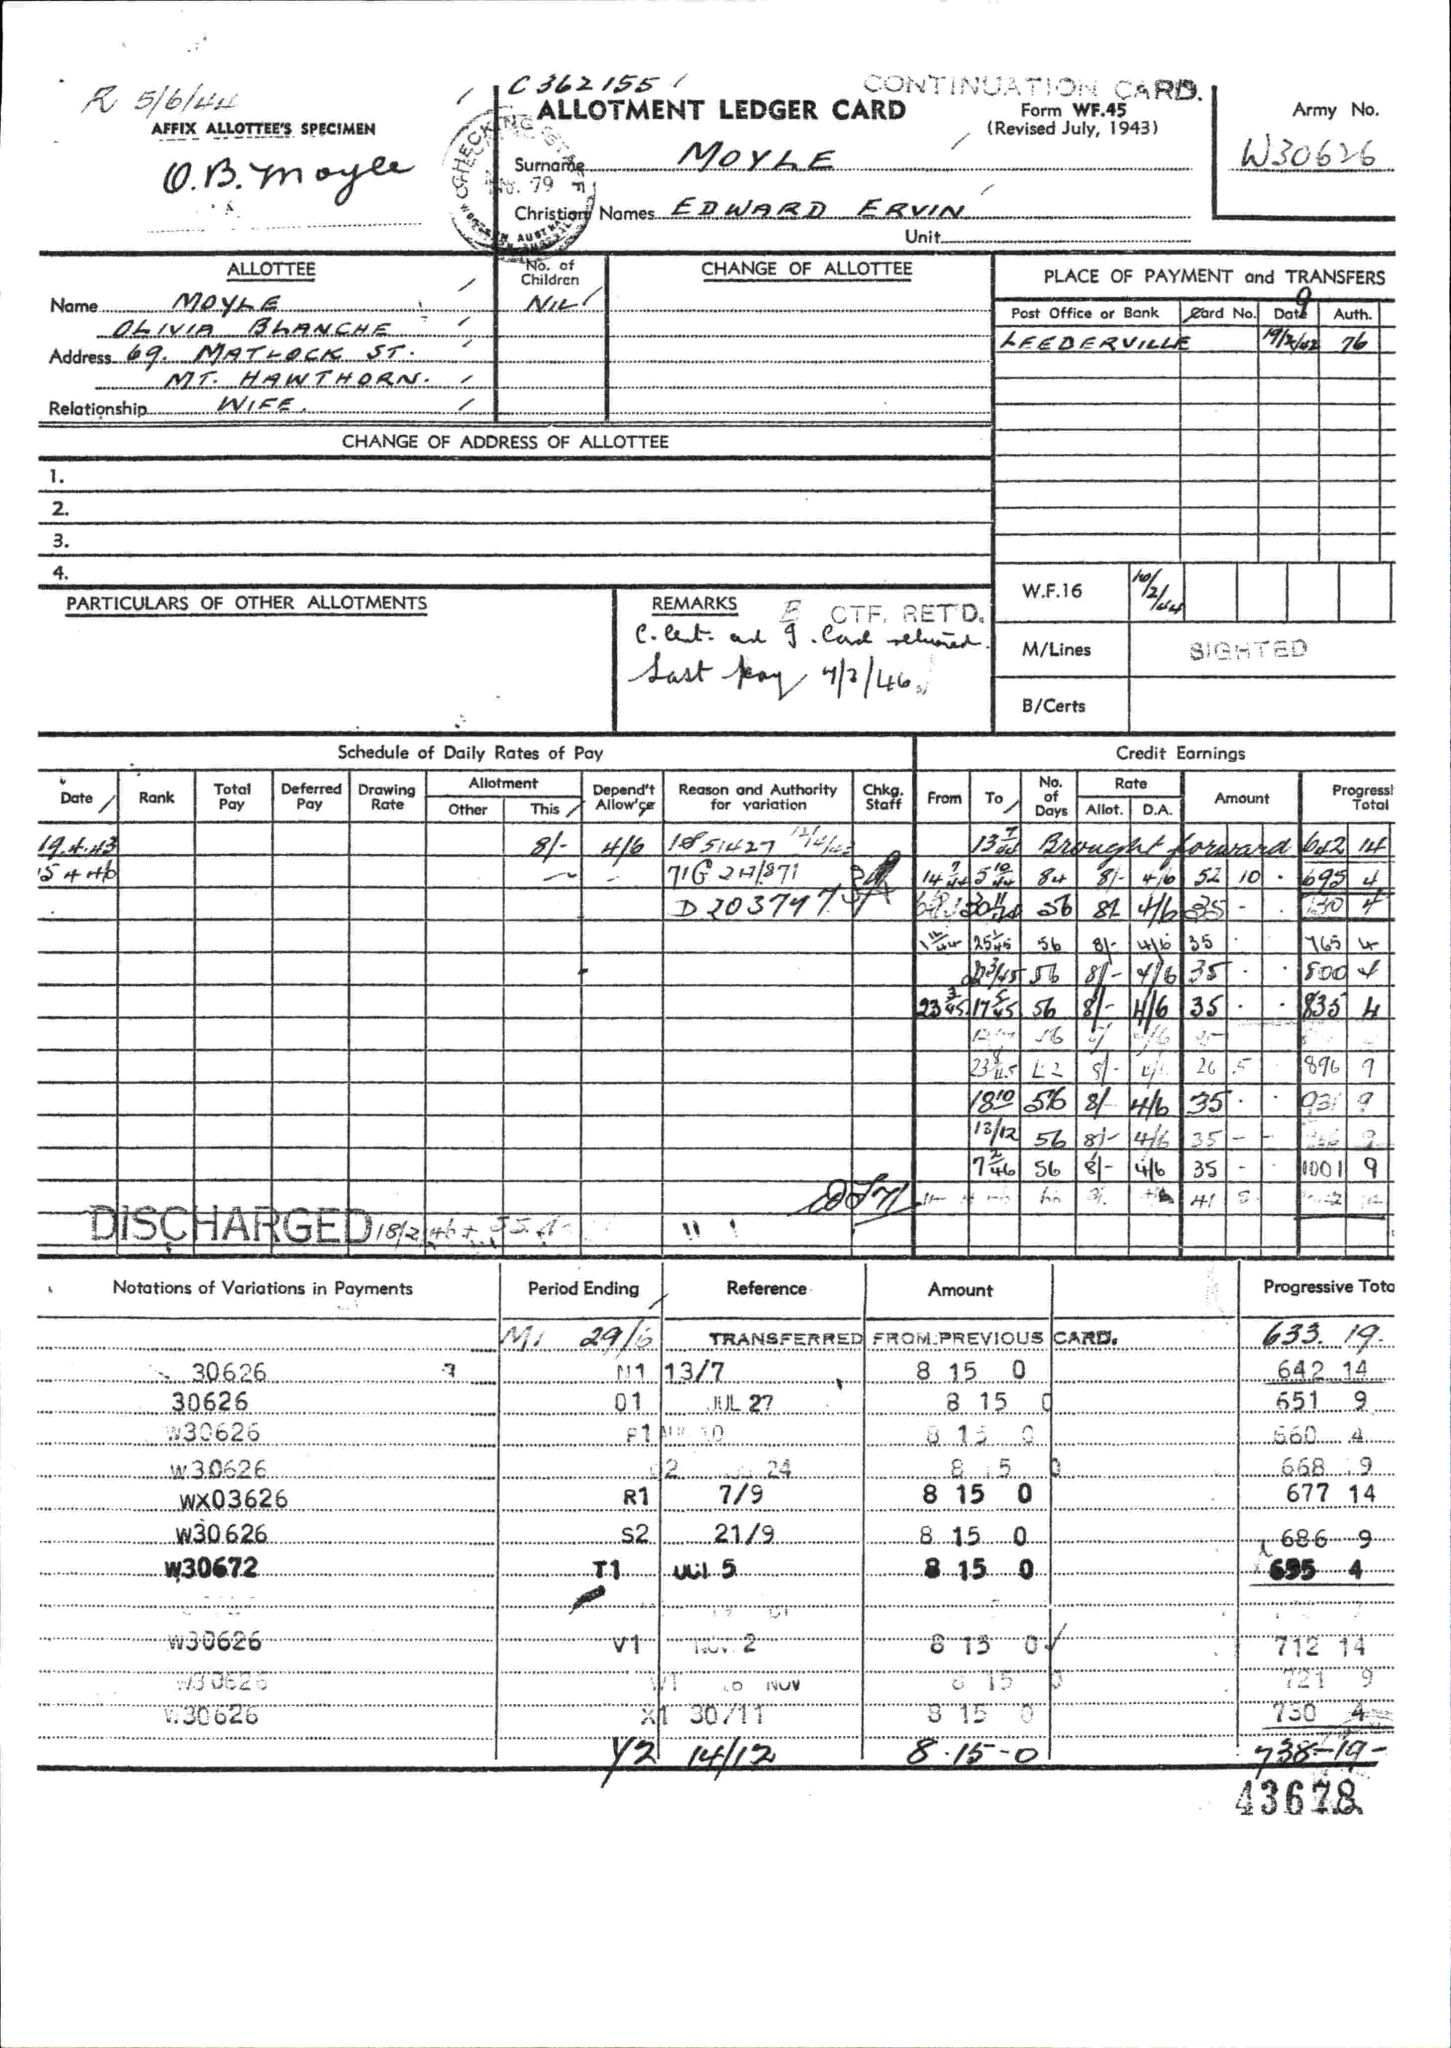 R 5/6/44
C362155
CONTINUATION CARD.
ALLOTMENT LEDGER CARD
Form WF.45
(Revised July, 1943)
Army No.
W30626
AFFIX ALLOTTEE'S SPECIMEN
O.B. Moyle
CHECKING STAFF
79
WESTERN AUSTRALIA
Surname MOYLE
Christian Names EDWARD ERVIN
Unit
ALLOTTEE
No. of Children
CHANGE OF ALLOTTEE
PLACE OF PAYMENT and TRANSFERS
Name MOYLE
NIL
OLIVIA BLANCHE
Address 69. MATLOCK ST.
MT. HAWTHORN.
Relationship WIFE.
Post Office or Bank Card No. Date Auth.
LEEDERVILLE 19/2/42 76
9
CHANGE OF ADDRESS OF ALLOTTEE
1.
2.
3.
4.
W.F.16 10/2/44
M/Lines SIGHTED
B/Certs
PARTICULARS OF OTHER ALLOTMENTS
REMARKS
CTF. RET'D.
C. Cert. and I. Card returned.
Last pay 7/2/46
Schedule of Daily Rates of Pay
Credit Earnings
Date Rank Total Pay Deferred Pay Drawing Rate Allotment Other This Depend't Allow'ce Reason and Authority for variation Chkg. Staff From To No. of Days Rate Allot. D.A. Amount Progressi Total
19.4.43 8/- 4/6 51427 13 7/44 Brought forward 642 14
15 4 46 - - 71G 14 7/44 5 10/44 84 8/- 4/6 52 10 . 695 4
D 203797 56 8/- 4/6 35 - . 730 4
25 1/45 56 8/- 4/6 35 . 765 4
56 8/- 4/6 35 . . 800 4
23 3/45 17 5/45 56 8/- 4/6 35 . . 835 4
56
26 5 896 9
18 10 56 8/- 4/6 35 . . 931 9
13/12 56 8/- 4/6 35 - -
7 2/46 56 8/- 4/6 35 - . 1001 9
41 5
DISCHARGED 18/2/46
Notations of Variations in Payments Period Ending Reference Amount Progressive Tota
M1 29/6 TRANSFERRED FROM PREVIOUS CARD. 633. 19.
30626 N1 13/7 8 15 0 642 14
30626 O1 JUL 27 8 15 0 651 9
W30626 P1 AUG 10 8 15 0 660 4
W30626 24 8 15 0 668 19
WX03626 R1 7/9 8 15 0 677 14
W30626 S2 21/9 8 15 0 686 9
W30672 T1 Oct 5 8 15 0 695 4
W30626 V1 NOV 2 8 15 0 712 14
W30626 W1 16 NOV 8 15 0 721 9
W30626 X1 30/11 8 15 0 730 4
Y2 14/12 8-15-0 738-19-
43678